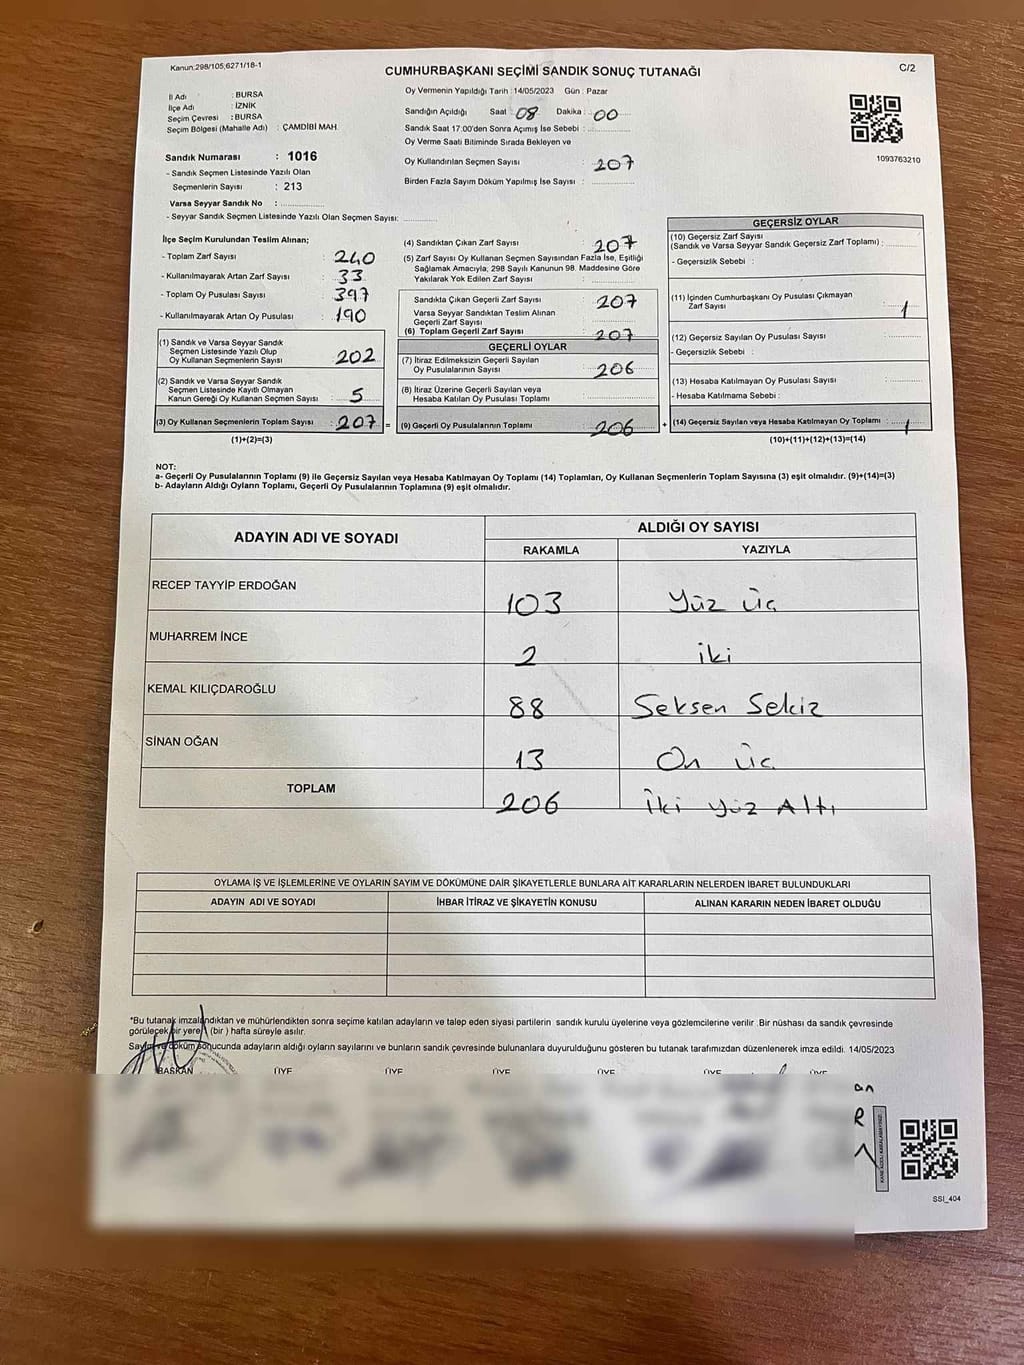 Kanun:298/105;6271/18-1
C/2
CUMHURBAŞKANI SEÇİMİ SANDIK SONUÇ TUTANAĞI
İl Adı : BURSA
İlçe Adı : İZNİK
Seçim Çevresi : BURSA
Seçim Bölgesi (Mahalle Adı) : ÇAMDİBİ MAH.
Sandık Numarası : 1016
- Sandık Seçmen Listesinde Yazılı Olan
Seçmenlerin Sayısı : 213
Varsa Seyyar Sandık No :
- Seyyar Sandık Seçmen Listesinde Yazılı Olan Seçmen Sayısı:
Oy Vermenin Yapıldığı Tarih :14/05/2023 Gün : Pazar
Sandığın Açıldığı Saat 08 Dakika : 00
Sandık Saat 17:00'den Sonra Açımış İse Sebebi :
Oy Verme Saati Bitiminde Sırada Bekleyen ve
Oy Kullandırılan Seçmen Sayısı : 207
Birden Fazla Sayım Döküm Yapılmış İse Sayısı :
1093763210
İlçe Seçim Kurulundan Teslim Alınan;
- Toplam Zarf Sayısı : 240
- Kullanılmayarak Artan Zarf Sayısı : 33
- Toplam Oy Pusulası Sayısı : 397
- Kullanılmayarak Artan Oy Pusulası : 190
(1) Sandık ve Varsa Seyyar Sandık
Seçmen Listesinde Yazılı Olup
Oy Kullanan Seçmenlerin Sayısı : 202
(2) Sandık ve Varsa Seyyar Sandık
Seçmen Listesinde Kayıtlı Olmayan
Kanun Gereği Oy Kullanan Seçmen Sayısı : 5
(3) Oy Kullanan Seçmenlerin Toplam Sayısı : 207 =
(1)+(2)=(3)
(4) Sandıktan Çıkan Zarf Sayısı : 207
(5) Zarf Sayısı Oy Kullanan Seçmen Sayısından Fazla İse, Eşitliği
Sağlamak Amacıyla, 298 Sayılı Kanunun 98. Maddesine Göre
Yakılarak Yok Edilen Zarf Sayısı :
Sandıkta Çıkan Geçerli Zarf Sayısı : 207
Varsa Seyyar Sandıktan Teslim Alınan
Geçerli Zarf Sayısı :
(6) Toplam Geçerli Zarf Sayısı : 207
GEÇERLİ OYLAR
(7) İtiraz Edilmeksizin Geçerli Sayılan
Oy Pusulalarının Sayısı : 206
(8) İtiraz Üzerine Geçerli Sayılan veya
Hesaba Katılan Oy Pusulası Toplamı :
(9) Geçerli Oy Pusulalarının Toplamı : 206 +
GEÇERSİZ OYLAR
(10) Geçersiz Zarf Sayısı
(Sandık ve Varsa Seyyar Sandık Geçersiz Zarf Toplamı) :
- Geçersizlik Sebebi :
(11) İçinden Cumhurbaşkanı Oy Pusulası Çıkmayan
Zarf Sayısı : 1
(12) Geçersiz Sayılan Oy Pusulası Sayısı :
- Geçersizlik Sebebi :
(13) Hesaba Katılmayan Oy Pusulası Sayısı :
- Hesaba Katılmama Sebebi :
(14) Geçersiz Sayılan veya Hesaba Katılmayan Oy Toplamı : 1
(10)+(11)+(12)+(13)=(14)
NOT:
a- Geçerli Oy Pusulalarının Toplamı (9) ile Geçersiz Sayılan veya Hesaba Katılmayan Oy Toplamı (14) Toplamları, Oy Kullanan Seçmenlerin Toplam Sayısına (3) eşit olmalıdır. (9)+(14)=(3)
b- Adayların Aldığı Oyların Toplamı, Geçerli Oy Pusulalarının Toplamına (9) eşit olmalıdır.
ADAYIN ADI VE SOYADI
ALDIĞI OY SAYISI
RAKAMLA YAZIYLA
RECEP TAYYİP ERDOĞAN 103 Yüz üç
MUHARREM İNCE 2 iki
KEMAL KILIÇDAROĞLU 88 Seksen Sekiz
SİNAN OĞAN 13 On üç
TOPLAM 206 İki yüz Altı
OYLAMA İŞ VE İŞLEMLERİNE VE OYLARIN SAYIM VE DÖKÜMÜNE DAİR ŞİKAYETLERLE BUNLARA AİT KARARLARIN NELERDEN İBARET BULUNDUKLARI
ADAYIN ADI VE SOYADI İHBAR İTİRAZ VE ŞİKAYETİN KONUSU ALINAN KARARIN NEDEN İBARET OLDUĞU
*Bu tutanak imzalandıktan ve mühürlendikten sonra seçime katılan adayların ve talep eden siyasi partilerin sandık kurulu üyelerine veya gözlemcilerine verilir .Bir nüshası da sandık çevresinde
görülecek bir yere (bir ) hafta süreyle asılır.
Sayım ve döküm sonucunda adayların aldığı oyların sayılarını ve bunların sandık çevresinde bulunanlara duyurulduğunu gösteren bu tutanak tarafımızdan düzenlenerek imza edildi. 14/05/2023
BAŞKAN ÜYE ÜYE ÜYE ÜYE ÜYE ÜYE
an
R
SSI_404